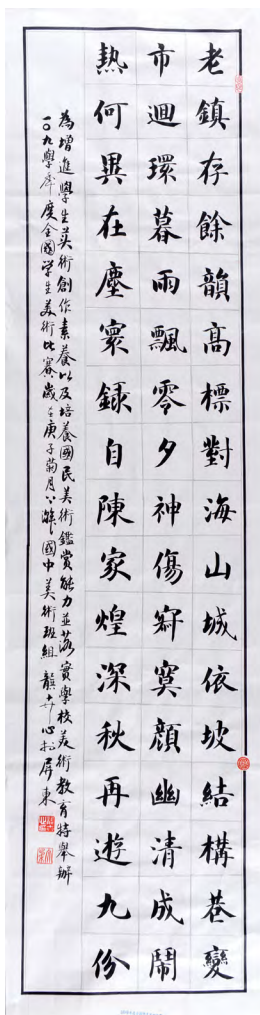 老鎮存餘韻高標對海山城依坡結構巷變
市迴環暮雨飄零夕神傷窮寞顏幽清成鬧
熱何異在塵寰錄自陳家煌深秋再遊九份
為增進學生美術創作素養以及培養國民美術鑑賞能力並落實學校美術教育特舉辦
一〇九學年度全國學生美術比賽歲在庚子菊月 國中美術班組 心於屏東